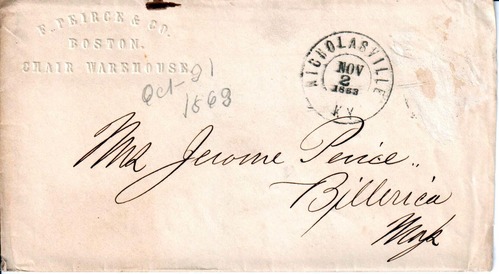 F. PEIRCE & CO.
BOSTON.
CHAIR WAREHOUSE
Oct 31
1863
NICHOLASVILLE
NOV
2
1863
KY
Mrs Jerome Peirce.
Billerica
Mass